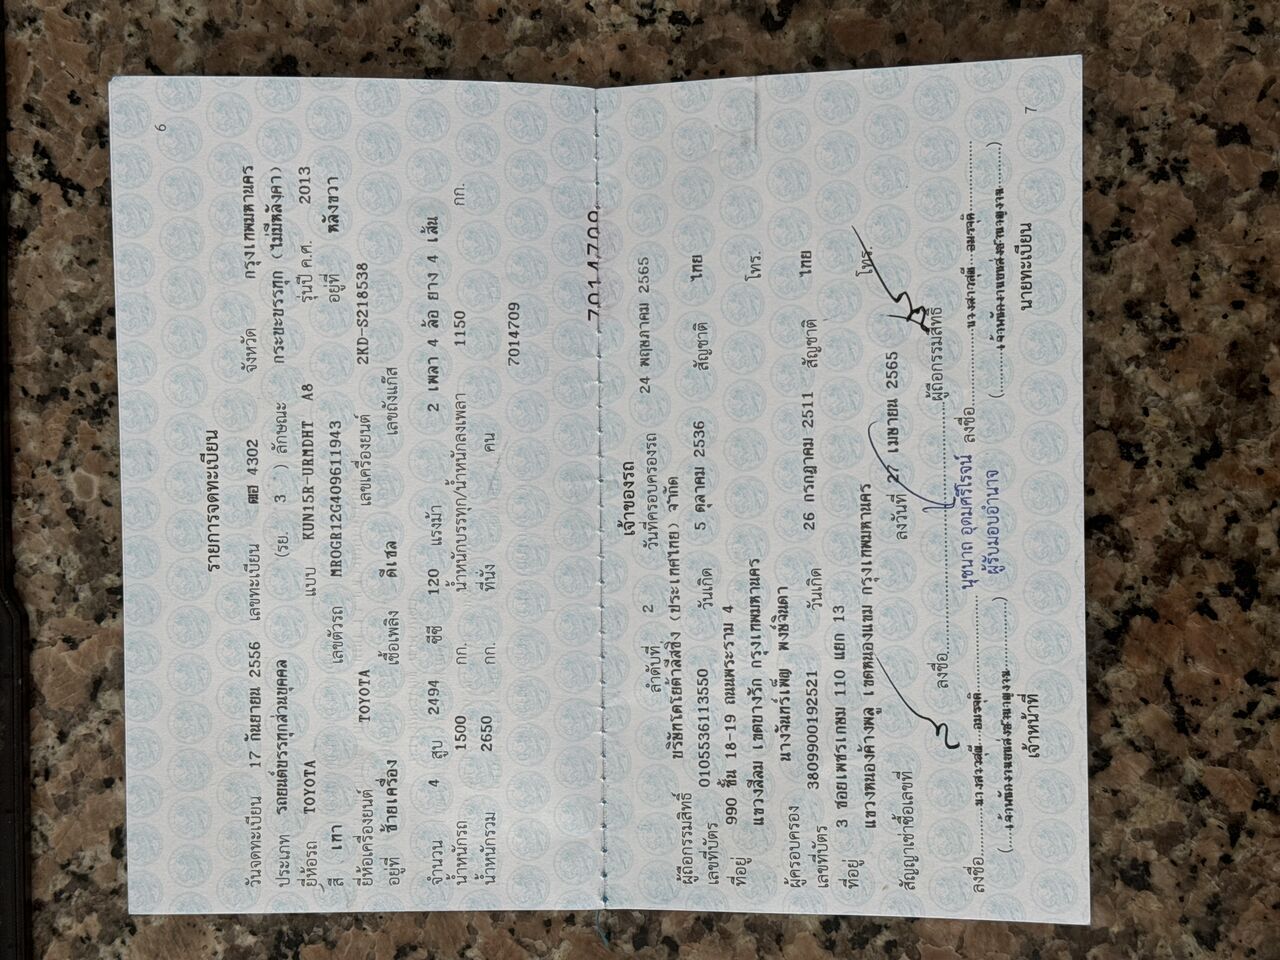 6
รายการจดทะเบียน
วันจดทะเบียน 17 กันยายน 2556 เลขทะเบียน ฒฮ 4302 จังหวัด กรุงเทพมหานคร
ประเภท รถยนต์บรรทุกส่วนบุคคล (รย. 3 ) ลักษณะ กระบะบรรทุก (ไม่มีหลังคา)
ยี่ห้อรถ TOYOTA แบบ KUN15R-URMDHT A8 รุ่นปี ค.ศ. 2013
สี เทา เลขตัวรถ MR0GR12G409611943 อยู่ที่ หลังขวา
ยี่ห้อเครื่องยนต์ TOYOTA เลขเครื่องยนต์ 2KD-S218538
อยู่ที่ ซ้ายเครื่อง เชื้อเพลิง ดีเซล เลขถังแก๊ส
จำนวน 4 สูบ 2494 ซีซี 120 แรงม้า 2 เพลา 4 ล้อ ยาง 4 เส้น
น้ำหนักรถ 1500 กก. น้ำหนักบรรทุก/น้ำหนักลงเพลา 1150 กก.
น้ำหนักรวม 2650 กก. ที่นั่ง คน
7014709
7014709
เจ้าของรถ
ลำดับที่ 2 วันที่ครอบครองรถ 24 พฤษภาคม 2565
ผู้ถือกรรมสิทธิ์ บริษัทโตโยต้าลีสซิ่ง (ประเทศไทย) จำกัด
เลขที่บัตร 0105536113550 วันเกิด 5 ตุลาคม 2536 สัญชาติ ไทย
ที่อยู่ 990 ชั้น 18-19 ถนนพระราม 4
แขวงสีลม เขตบางรัก กรุงเทพมหานคร โทร.
ผู้ครอบครอง นางจันทร์เพ็ญ พงษ์จินดา
เลขที่บัตร 3809900192521 วันเกิด 26 กรกฎาคม 2511 สัญชาติ ไทย
ที่อยู่ 3 ซอยเพชรเกษม 110 แยก 13
แขวงหนองค้างพลู เขตหนองแขม กรุงเทพมหานคร โทร.
สัญญาเช่าซื้อเลขที่ ลงวันที่ 27 เมษายน 2565
ลงชื่อ ผู้ถือกรรมสิทธิ์
นุชนาถ อุดมศิริโรจน์
ผู้รับมอบอำนาจ
ลงชื่อ ลงชื่อ
เจ้าหน้าที่ นายทะเบียน
7